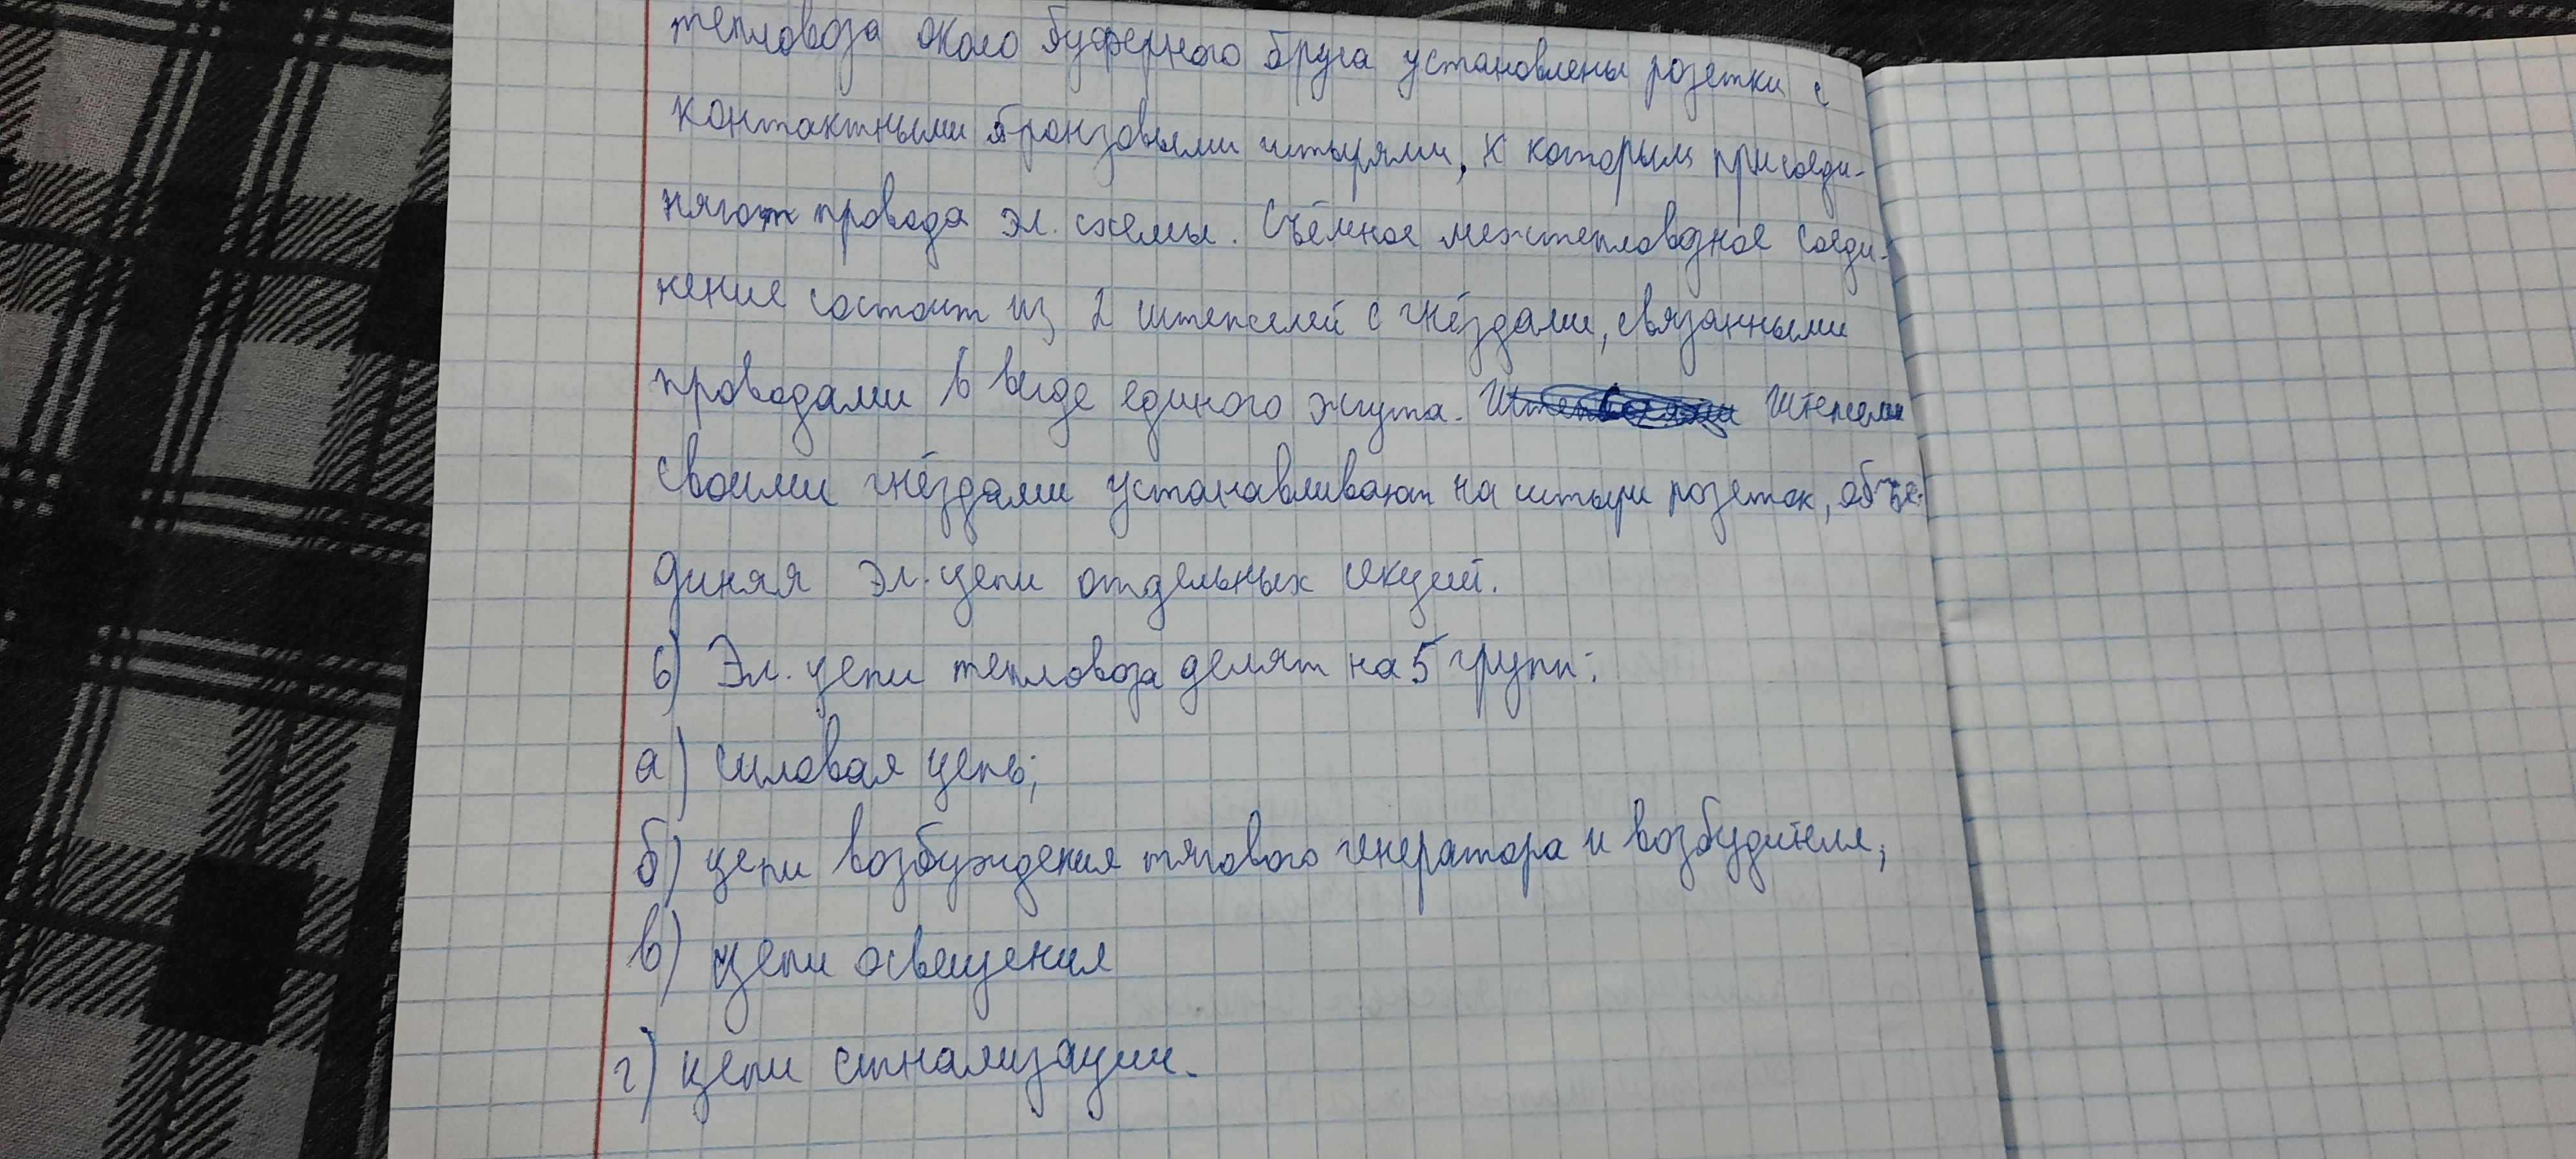 тепловоза около буферного бруса установлены розетки с
контактными бронзовыми штырями, к которым присоеди-
няют провода эл. схемы. Съёмное межтепловозное соеди-
нение состоит из 2 штепселей с гнёздами, связанными
проводами в виде единого жгута. Штепселя
своими гнёздами устанавливают на штыри розеток, объе-
диняя эл. цепи отдельных секций.
6) Эл. цепи тепловоза делят на 5 групп:
а) силовая цепь;
б) цепи возбуждения тягового генератора и возбудителя;
в) цепи освещения
г) цепи сигнализации.